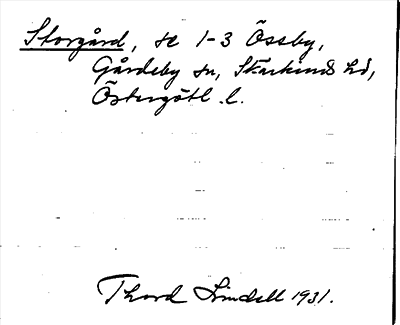 Storgård, se 1-3 Össby,
Gårdeby sn, Skärkinds hd,
Östergötl. l.
Thord Lindell 1931.